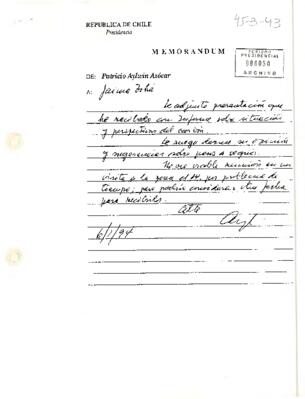 45-3-43
REPUBLICA DE CHILE
Presidencia
MEMORANDUM
PERIODO
PRESIDENCIAL
000050
ARCHIVO
DE: Patricio Aylwin Azócar
A: Jaime
Te adjunto presentación que
he recibido con informe sobre situación
y perspectivas del carbón.
Te ruego darme su opinión
y sugerencias sobre pasos a seguir.
No veo viable reunión en mi
visita a la zona el 14, por problema de
tiempo; pero podría considerar otra fecha
para recibirlos.
6/1/94